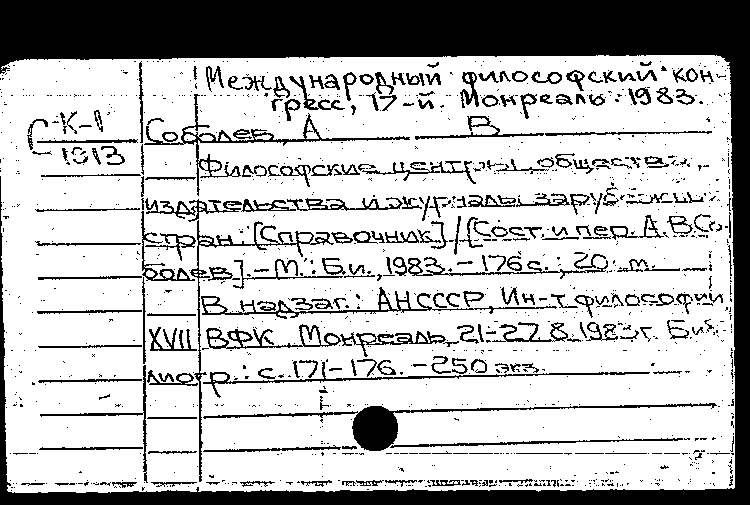 Международный философский кон-
гресс, 17-й. Монреаль. 1983.
С К-1
1913
Соболев, А В
Философские центры, общества,
издательства и журналы зарубежных
стран: [Справочник] / [Сост. и пер. А.В.Со-
болев]. – М.: Б.и., 1983. – 176 с.; 20 т.
В надзаг.: АН СССР, Ин-т философии,
XVII ВФК. Монреаль, 21-27.8.1983 г. Биб-
лиогр.: с. 171-176. – 250 экз.